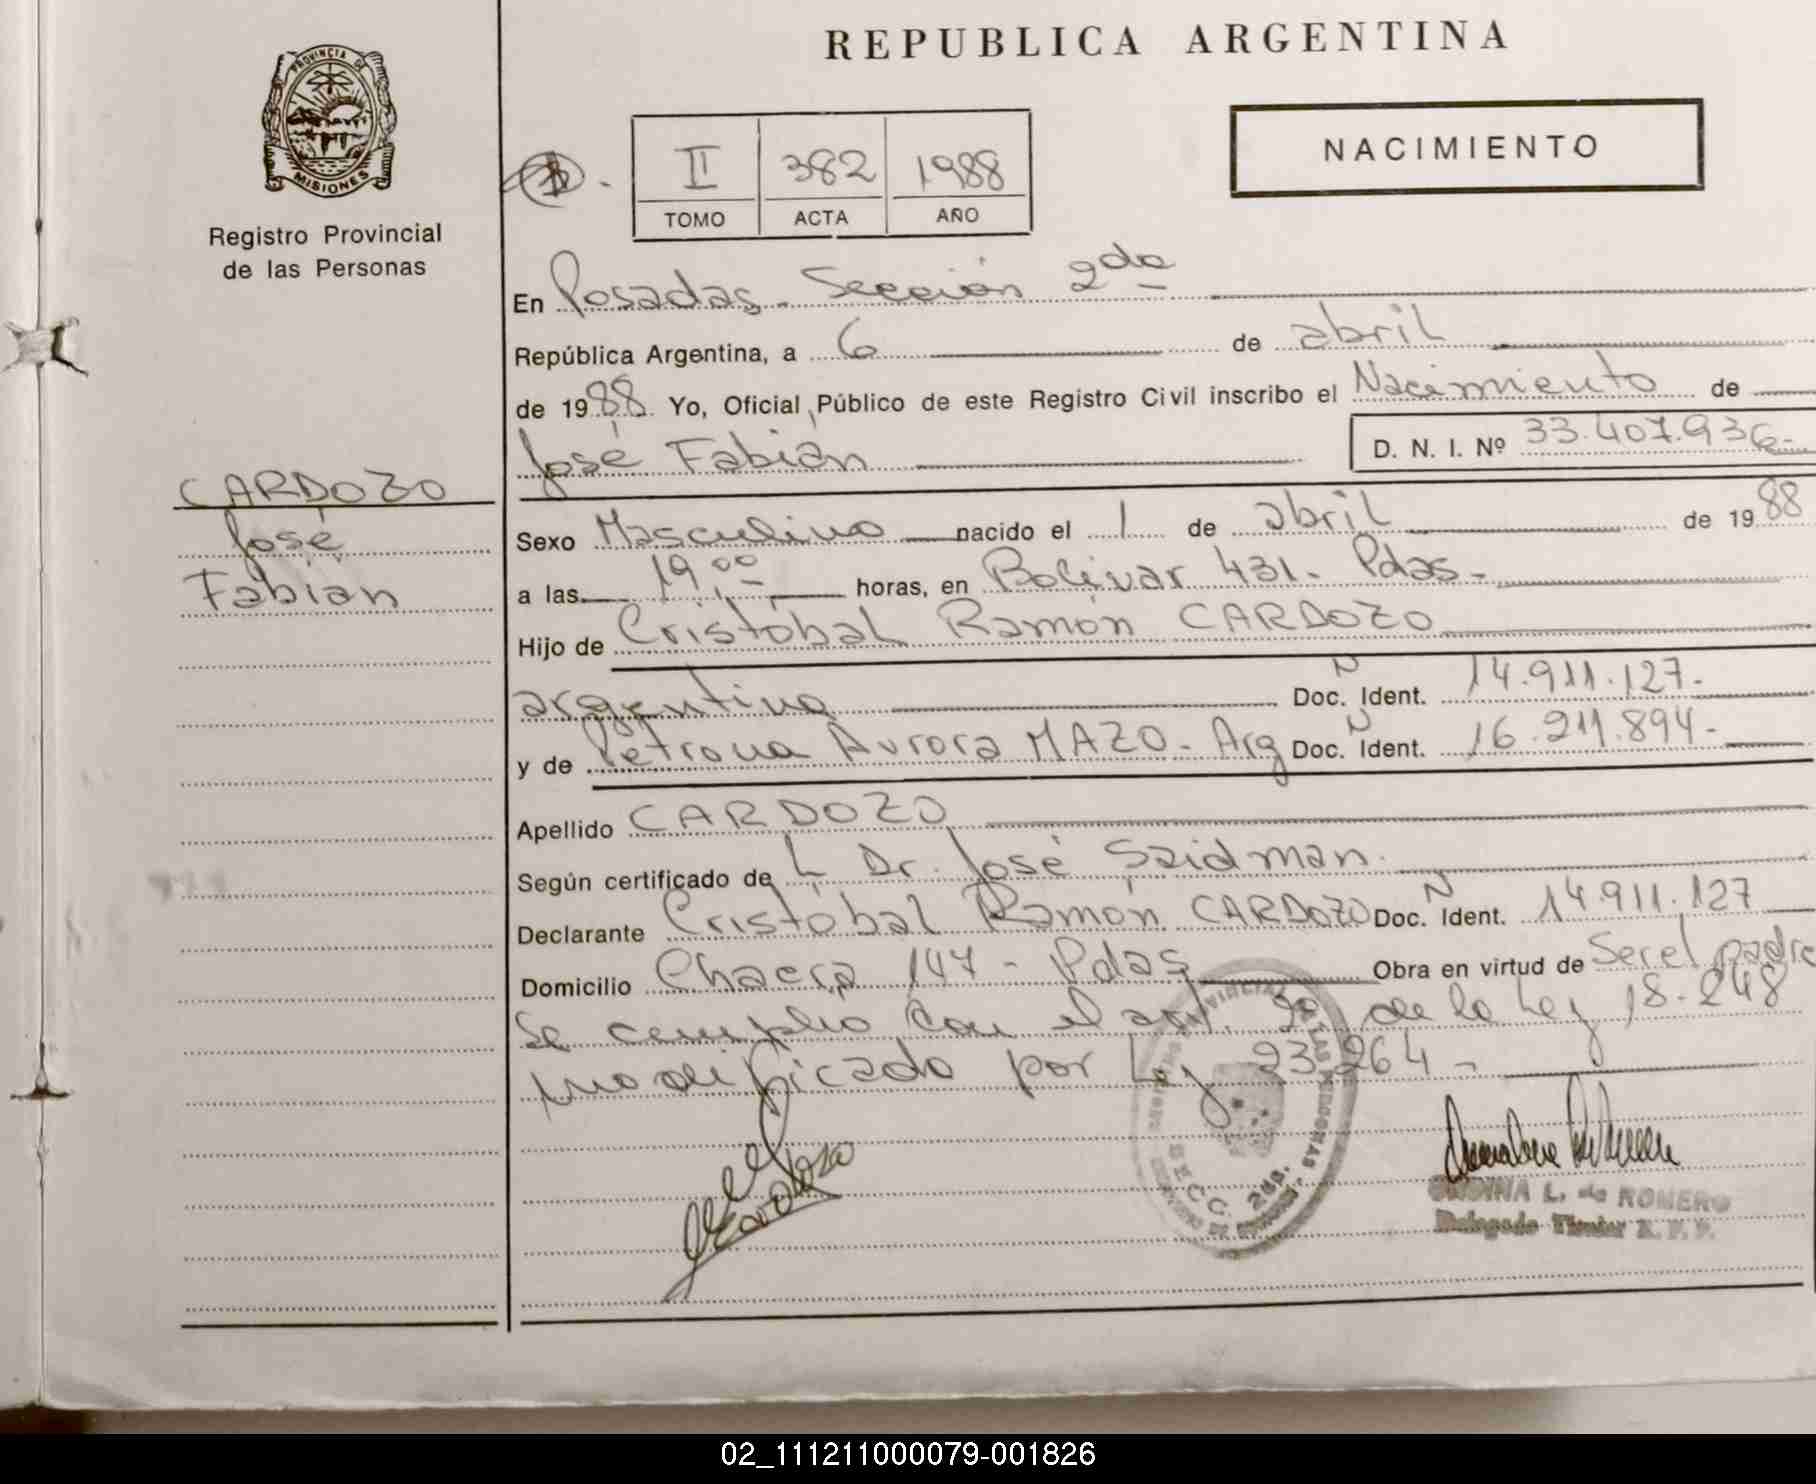 PROVINCIA DE
MISIONES
Registro Provincial
de las Personas
CARDOZO
José
Fabián
REPUBLICA ARGENTINA
NACIMIENTO
II 382 1988
TOMO ACTA AÑO
En Posadas - Sección 2da
República Argentina, a 6 de abril
de 1988 Yo, Oficial Público de este Registro Civil inscribo el Nacimiento de
José Fabián D. N. I. Nº 33.407.936-
Sexo Masculino nacido el 1 de abril de 1988
a las 19,00 horas, en Bolívar 431 - Pdas -
Hijo de Cristóbal Ramón CARDOZO
argentino Doc. N Ident. 14.911.127-
y de Petrona Aurora MAZO - Arg Doc. N Ident. 16.211.894-
Apellido CARDOZO
Según certificado de L Dr. José Saidman
Declarante Cristóbal Ramón CARDOZO Doc. N Ident. 14.911.127
Domicilio Chacra 147 - Pdas Obra en virtud de Ser el padre
Se cumplio con el art. de la Ley 18.248
modificado por Ley 23.264 -
Cardozo
SECC. 2da.
L. de ROMERO
Delegado Titular R. P. P.
02_111211000079-001826